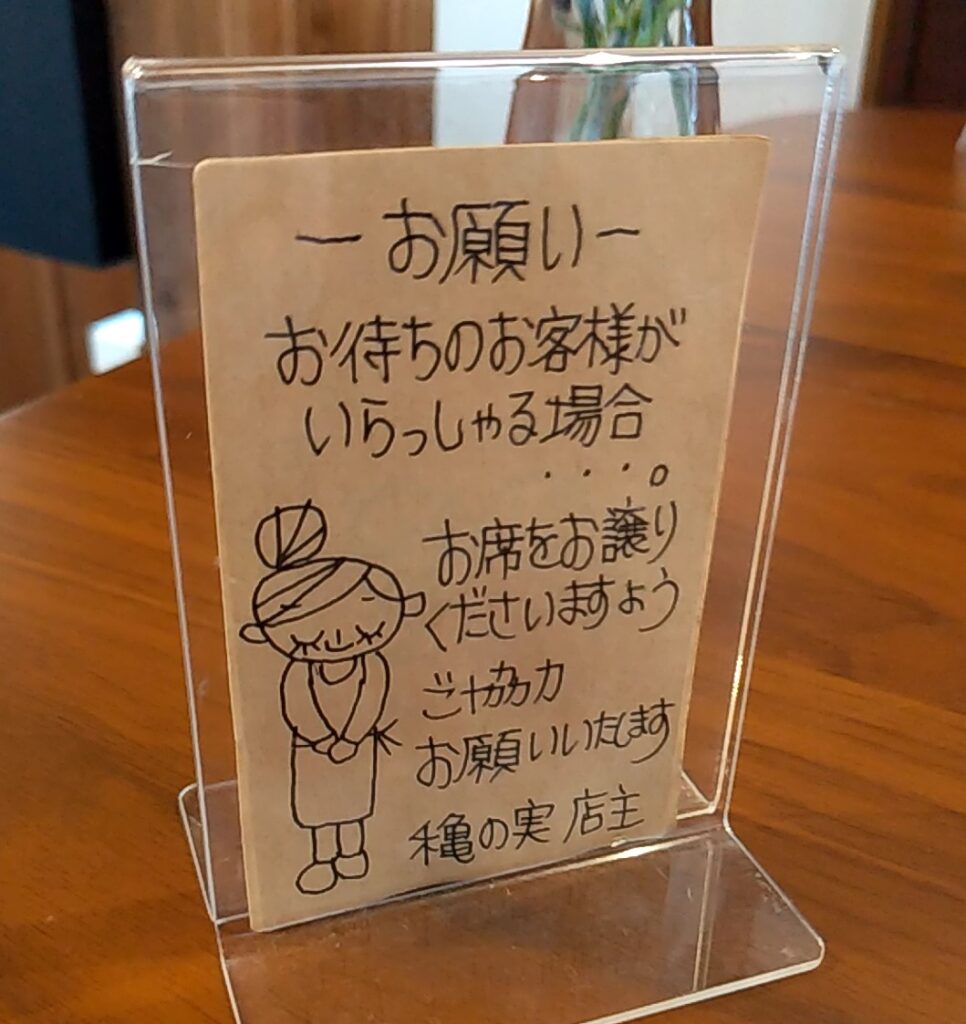 ーお願いー
お待ちのお客様が
いらっしゃる場合
・・・。
お席をお譲り
くださいますよう
ご協力
お願いいたします
穐の実 店主